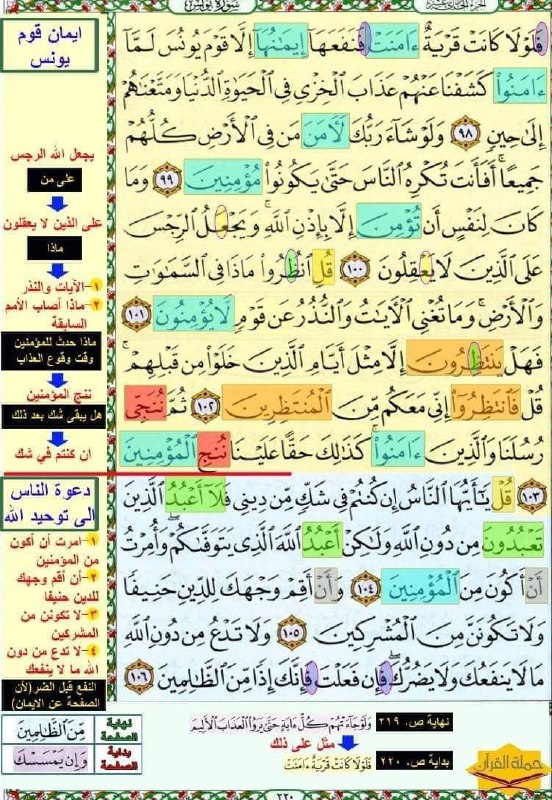 سورة يونس
الجزء الحادي عشر
فَلَوْلَا كَانَتْ قَرْيَةٌ ءَامَنَتْ فَنَفَعَهَآ إِيمَٰنُهَآ إِلَّا قَوْمَ يُونُسَ لَمَّآ
ءَامَنُوا۟ كَشَفْنَا عَنْهُمْ عَذَابَ ٱلْخِزْىِ فِى ٱلْحَيَوٰةِ ٱلدُّنْيَا وَمَتَّعْنَٰهُمْ
إِلَىٰ حِينٍ ٩٨ وَلَوْ شَآءَ رَبُّكَ لَءَامَنَ مَن فِى ٱلْأَرْضِ كُلُّهُمْ
جَمِيعًا ۚ أَفَأَنتَ تُكْرِهُ ٱلنَّاسَ حَتَّىٰ يَكُونُوا۟ مُؤْمِنِينَ ٩٩ وَمَا
كَانَ لِنَفْسٍ أَن تُؤْمِنَ إِلَّا بِإِذْنِ ٱللَّهِ ۚ وَيَجْعَلُ ٱلرِّجْسَ
عَلَى ٱلَّذِينَ لَا يَعْقِلُونَ ١٠٠ قُلِ ٱنظُرُوا۟ مَاذَا فِى ٱلسَّمَٰوَٰتِ
وَٱلْأَرْضِ ۚ وَمَا تُغْنِى ٱلْءَايَٰتُ وَٱلنُّذُرُ عَن قَوْمٍ لَّا يُؤْمِنُونَ ١٠١
فَهَلْ يَنتَظِرُونَ إِلَّا مِثْلَ أَيَّامِ ٱلَّذِينَ خَلَوْا۟ مِن قَبْلِهِمْ ۚ
قُلْ فَٱنتَظِرُوٓا۟ إِنِّى مَعَكُم مِّنَ ٱلْمُنتَظِرِينَ ١٠٢ ثُمَّ نُنَجِّى
رُسُلَنَا وَٱلَّذِينَ ءَامَنُوا۟ ۚ كَذَٰلِكَ حَقًّا عَلَيْنَا نُنجِ ٱلْمُؤْمِنِينَ
١٠٣ قُلْ يَٰٓأَيُّهَا ٱلنَّاسُ إِن كُنتُمْ فِى شَكٍّ مِّن دِينِى فَلَآ أَعْبُدُ ٱلَّذِينَ
تَعْبُدُونَ مِن دُونِ ٱللَّهِ وَلَٰكِنْ أَعْبُدُ ٱللَّهَ ٱلَّذِى يَتَوَفَّىٰكُمْ ۖ وَأُمِرْتُ
أَنْ أَكُونَ مِنَ ٱلْمُؤْمِنِينَ ١٠٤ وَأَنْ أَقِمْ وَجْهَكَ لِلدِّينِ حَنِيفًا
وَلَا تَكُونَنَّ مِنَ ٱلْمُشْرِكِينَ ١٠٥ وَلَا تَدْعُ مِن دُونِ ٱللَّهِ
مَا لَا يَنفَعُكَ وَلَا يَضُرُّكَ ۖ فَإِن فَعَلْتَ فَإِنَّكَ إِذًا مِّنَ ٱلظَّٰلِمِينَ ١٠٦
ايمان قوم
يونس
يجعل الله الرجس
على من
على الذين لا يعقلون
ماذا
١-الآيات والنذر
٢-ماذا أصاب الأمم
السابقة
ماذا حدث للمؤمنين
وقت وقوع العذاب
ننج المؤمنين
هل يبقى شك بعد ذلك
ان كنتم في شك
دعوة الناس
الى توحيد الله
١- امرت أن أكون
من المؤمنين
٢- أن أقم وجهك
للدين حنيفا
٣- لا تكونن من
المشركين
٤- لا تدع من دون
الله ما لا ينفعك
النفع قبل الضر(لأن
الصفحة عن الايمان)
نهاية ص. ٢١٩
وَلَوْ جَآءَتْهُمْ كُلُّ ءَايَةٍ حَتَّىٰ يَرَوُا۟ ٱلْعَذَابَ ٱلْأَلِيمَ
مثل على ذلك
بداية ص. ٢٢٠
فَلَوْلَا كَانَتْ قَرْيَةٌ ءَامَنَتْ
نهاية الصفحة
مِّنَ ٱلظَّٰلِمِينَ
بداية الصفحة
وَإِن يَمْسَسْكَ
حملة القرآن
٢٢٠